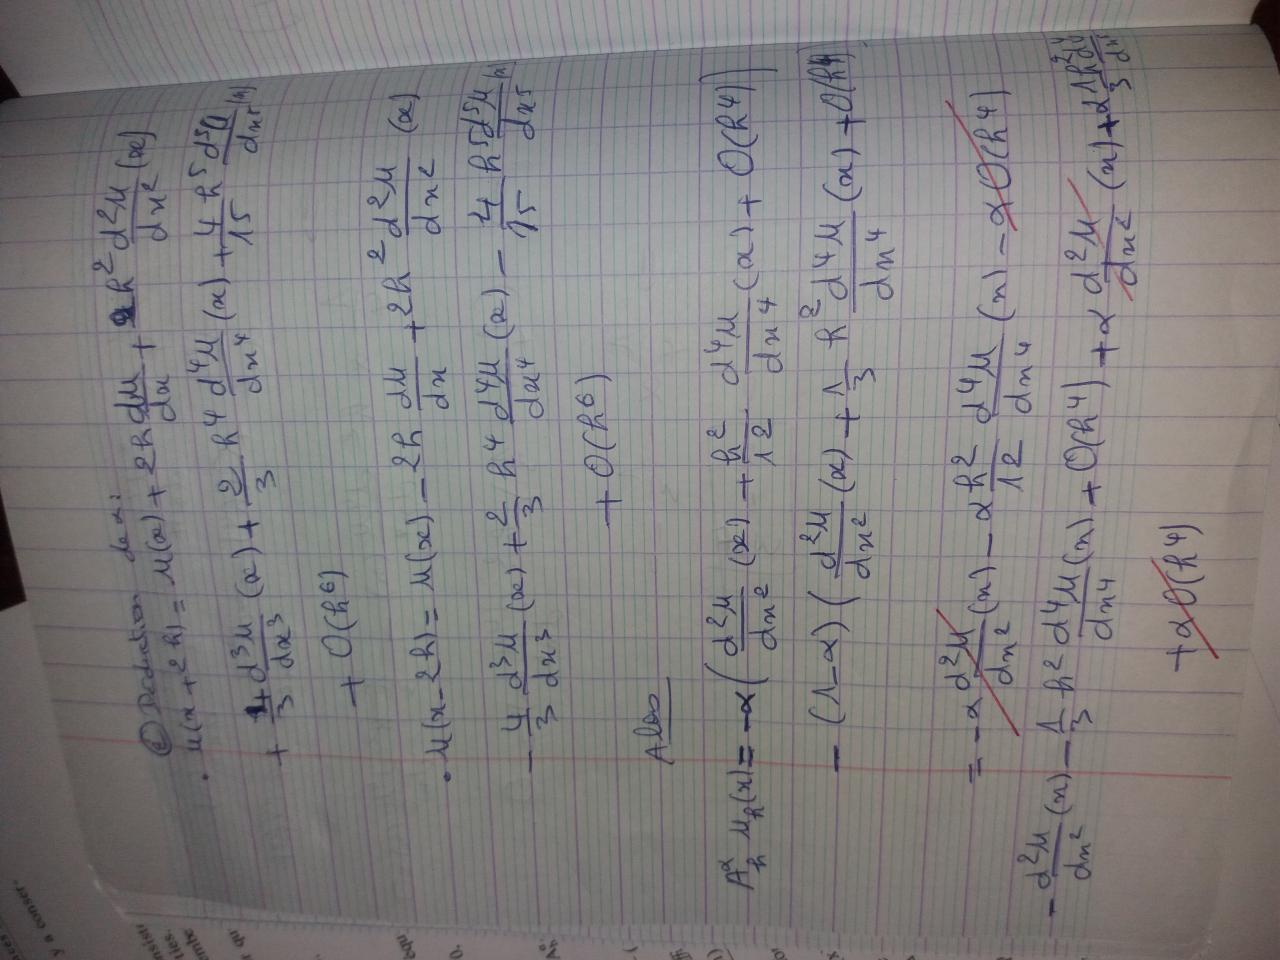 ② Déduction de α :
• μ(x+2h) = μ(x) + 2h dμ/dx + 2h² d²μ/dx² (x)
+ 4/3 d³μ/dx³ (x) + 2/3 h⁴ d⁴μ/dx⁴ (x) + 4/15 h⁵ d⁵μ/dx⁵ (x)
+ O(h⁶)
• μ(x-2h) = μ(x) - 2h dμ/dx + 2h² d²μ/dx² (x)
- 4/3 d³μ/dx³ (x) + 2/3 h⁴ d⁴μ/dx⁴ (x) - 4/15 h⁵ d⁵μ/dx⁵ (x)
+ O(h⁶)
Alors
A_h^α μ_h(x) = -α ( d²μ/dx² (x) + h²/12 d⁴μ/dx⁴ (x) + O(h⁴) )
- (1-α) ( d²μ/dx² (x) + 1/3 h² d⁴μ/dx⁴ (x) + O(h⁴) )
= -α d²μ/dx² (x) - α h²/12 d⁴μ/dx⁴ (x) - α O(h⁴)
- d²μ/dx² (x) - 1/3 h² d⁴μ/dx⁴ (x) + O(h⁴) + α d²μ/dx² (x) + α 1/3 h² d⁴μ/dx⁴
+ α O(h⁴)